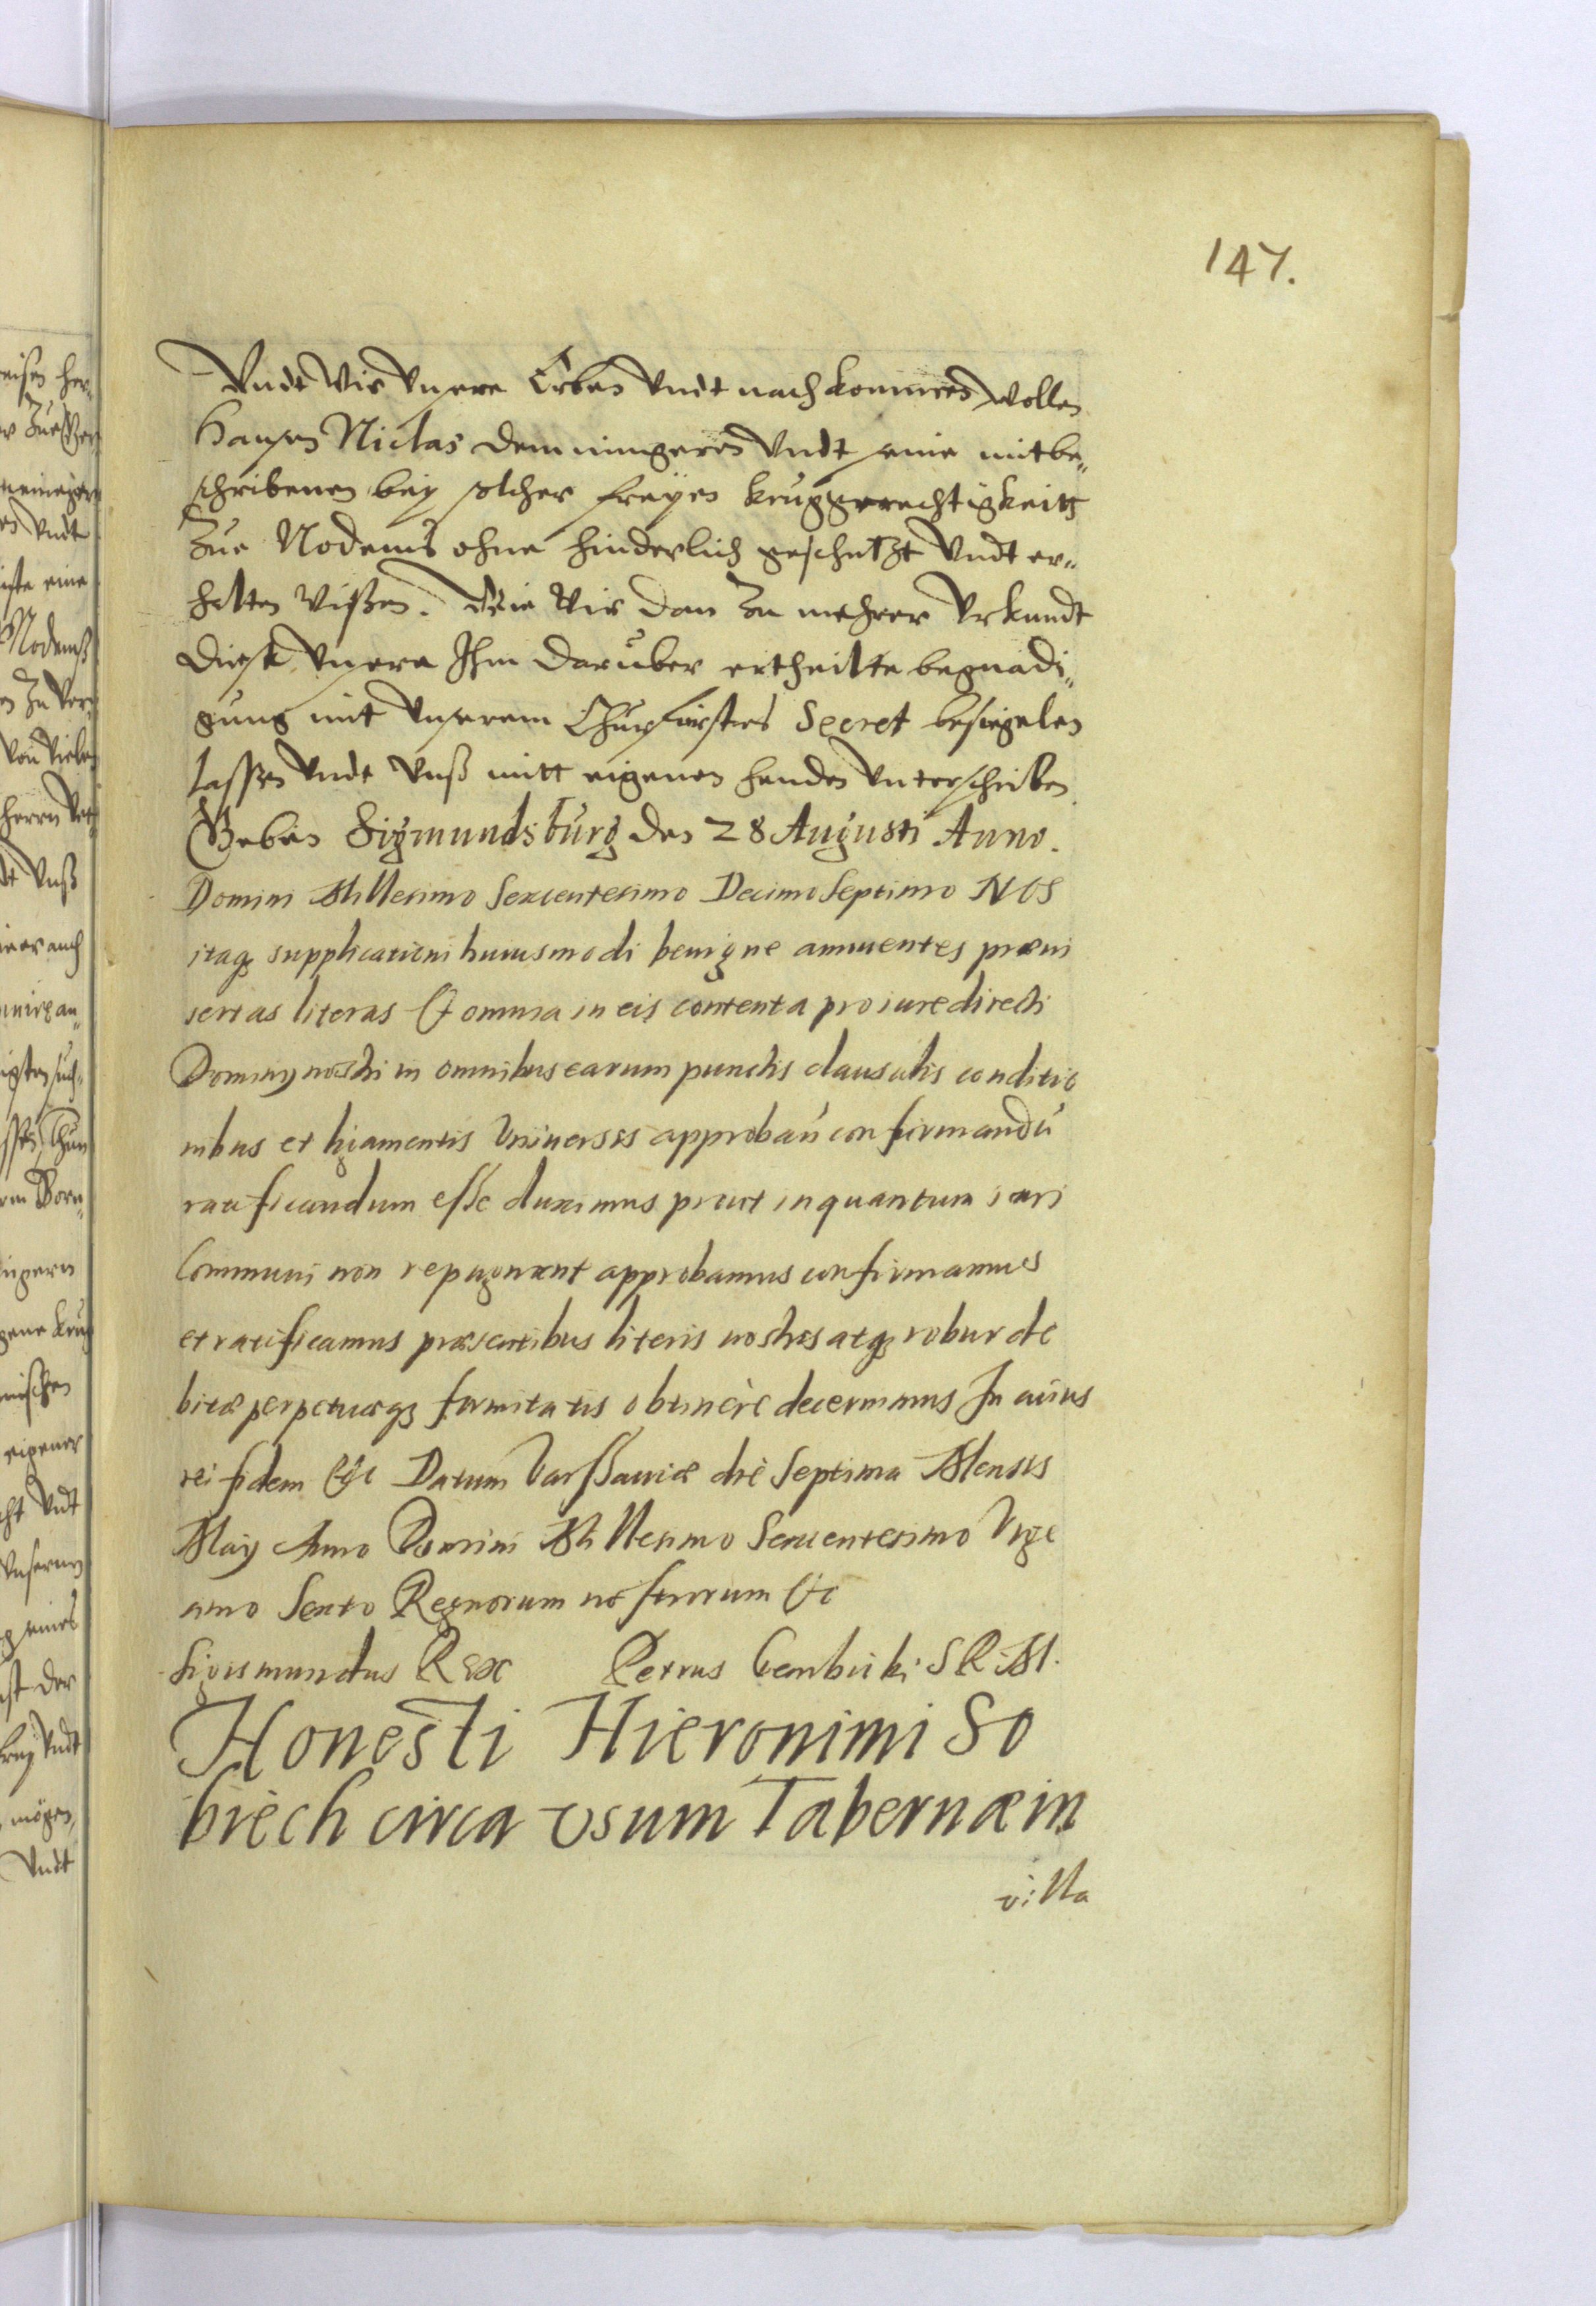 147.
Vndt Wir Vnsere Erben Vndt nachkommen wollen
Hansen Niclas dem iungeren Vndt seine mitbe„
schribenen beÿ solcher freÿen kruggerechtigkeitt
Zue Nodems ohne hinderlich geschutzt Vndt er„
halten Wißen. Wie Wir dan Zu mehrer Vrkundt
diese Vnsere Ihm daruber ertheilte begnadi„
gung mit Vnserem Churfursten Secret besiegelen
lassen Vndt Vnß mitt eigenen handen Vnterschriben
Geben Sigmundsburg den 28 Augusti Anno.
Domini Millesimo Sexcentesimo Decimo Septimo NOS
itaq supplicationi huiusmodi benigne annuentes præin
sertas literas Et omnia in eis contenta pro iure directi
Dominÿ nostri in omnibus earum punctis clausulis conditio
nibus et ligamentis Vniuersis approbaũ confirmandũ
ratificandum esse duximus prout in quantum iuri
Communi non repugnant approbamus confirmamus
et ratificamus præsentibus literis nostris atq robur de
bitæ perpetuæq firmitatis obtinere decernimus In cuius
rei fidem Etc Datum Varssauiæ die Septima Mensis
Maÿ Anno Domini Millesimo Sexcentesimo Vige
simo Sexto Regnorum nostrorum Etc
Sigismundus Rex Petrus Gembicki S R M.
Honesti Hieronimi So
briech circa vsum Tabernæ in
villa